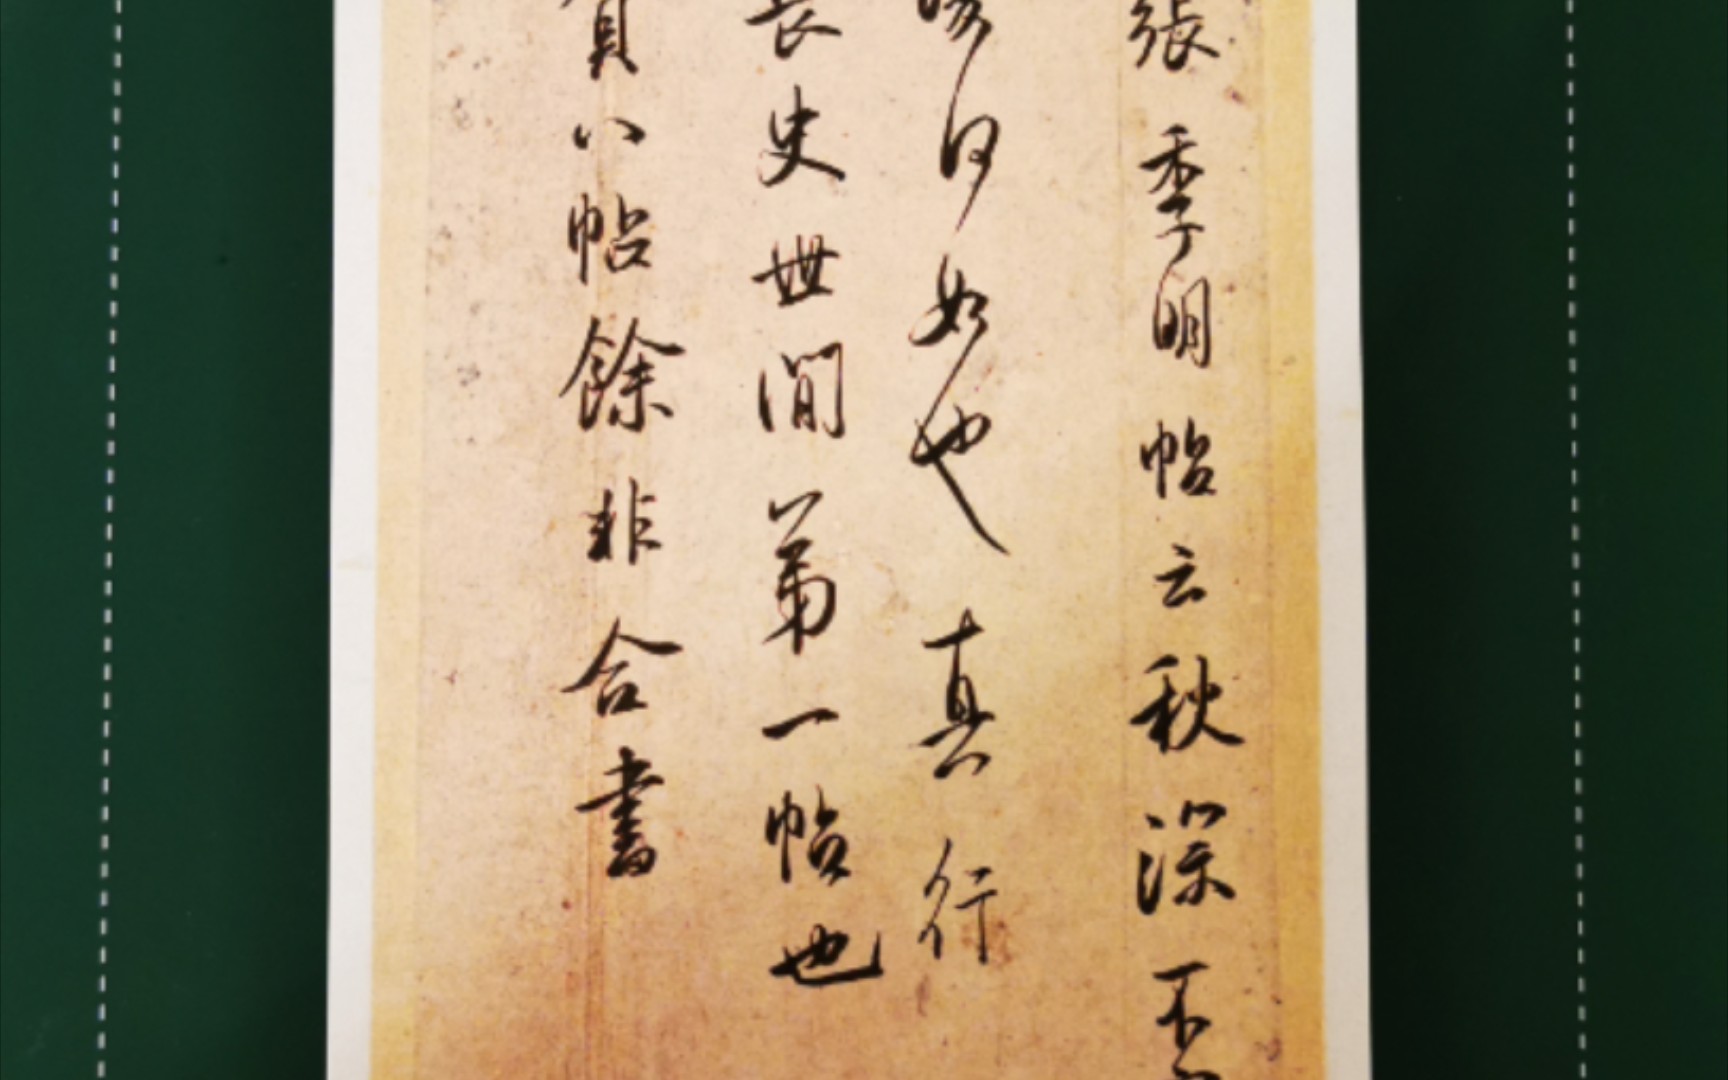 張季明帖云秋深不
復何如也真行
長史世間第一帖也
賀八帖餘非合書